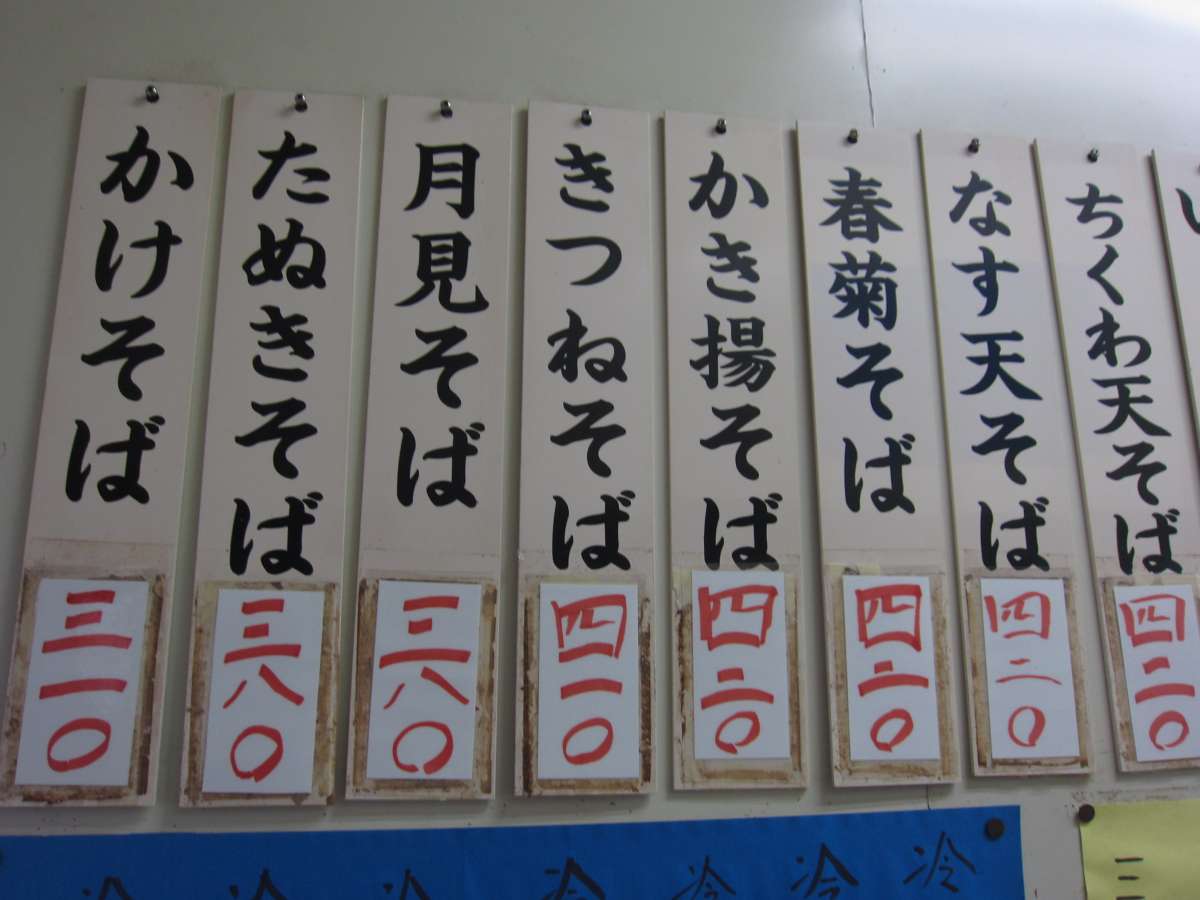 かけそば
三一〇
たぬきそば
三八〇
月見そば
三八〇
きつねそば
四一〇
かき揚そば
四二〇
春菊そば
四二〇
なす天そば
四二〇
ちくわ天そば
四二〇
冷
冷
冷
冷
冷
冷
冷